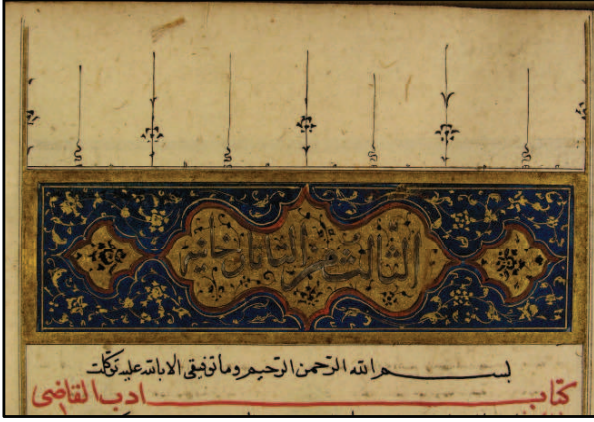 الثالث من التاتارخانية
بسم الله الرحمن الرحيم وما توفيقي الا بالله عليه توكلت
كتاب ادب القاضى